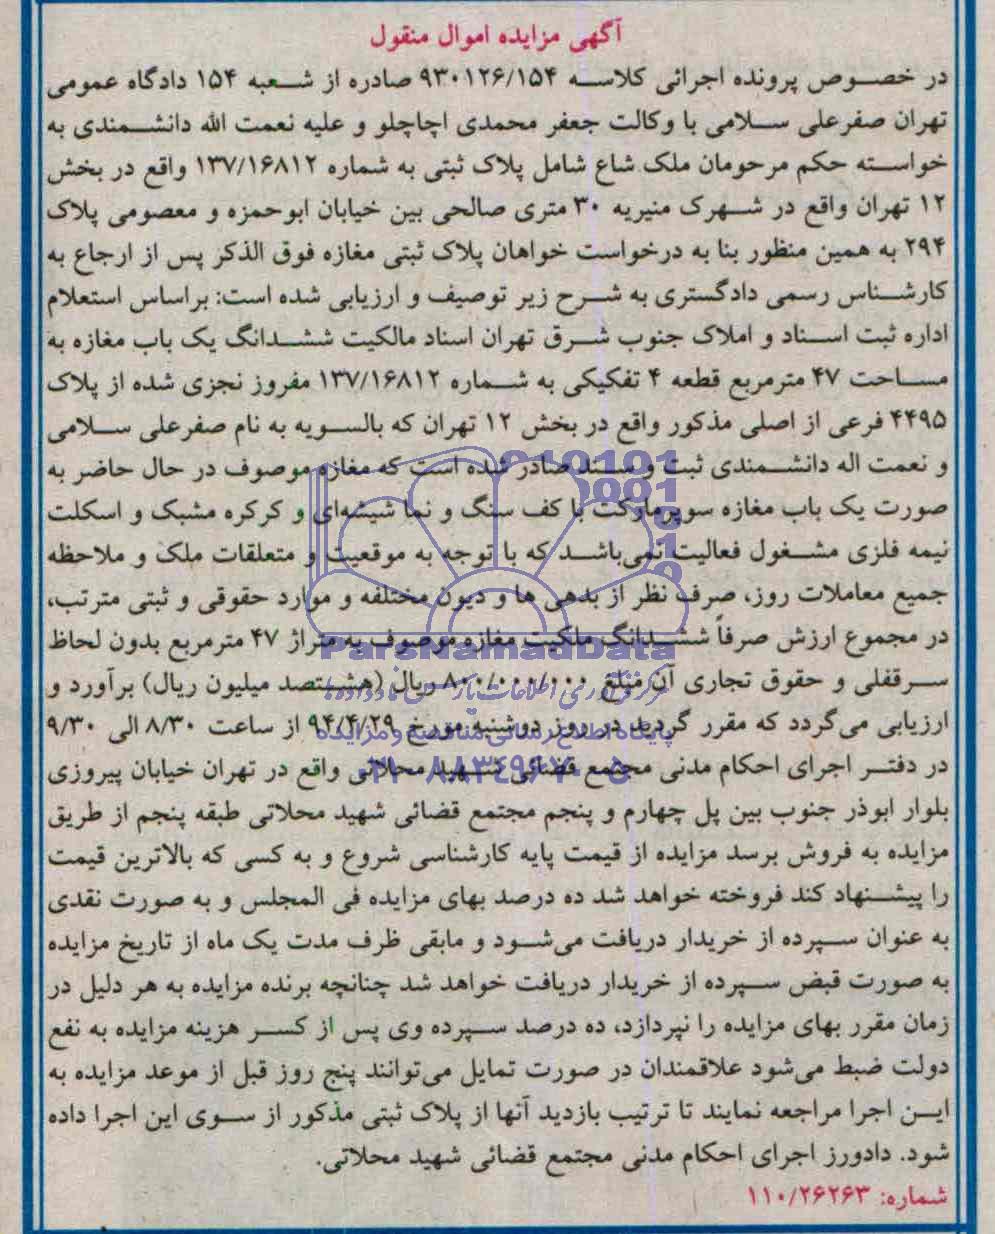 آگهی مزایده اموال منقول
در خصوص پرونده اجرائی کلاسه ۹۳۰۱۲۶/۱۵۴ صادره از شعبه ۱۵۴ دادگاه عمومی
تهران صفرعلی سلامی با وکالت جعفر محمدی اچاچلو و علیه نعمت الله دانشمندی به
خواسته حکم مرحومان ملک شاع شامل پلاک ثبتی به شماره ۱۳۷/۱۶۸۱۲ واقع در بخش
۱۲ تهران واقع در شهرک منیریه ۳۰ متری صالحی بین خیابان ابوحمزه و معصومی پلاک
۲۹۴ به همین منظور بنا به درخواست خواهان پلاک ثبتی مغازه فوق الذکر پس از ارجاع به
کارشناس رسمی دادگستری به شرح زیر توصیف و ارزیابی شده است: براساس استعلام
اداره ثبت اسناد و املاک جنوب شرق تهران اسناد مالکیت ششدانگ یک باب مغازه به
مساحت ۴۷ مترمربع قطعه ۴ تفکیکی به شماره ۱۳۷/۱۶۸۱۲ مفروز نجزی شده از پلاک
۴۴۹۵ فرعی از اصلی مذکور واقع در بخش ۱۲ تهران که بالسویه به نام صفرعلی سلامی
و نعمت اله دانشمندی ثبت و سند صادر شده است که مغازه موصوف در حال حاضر به
صورت یک باب مغازه سوپرمارکت با کف سنگ و نما شیشه‌ای و کرکره مشبک و اسکلت
نیمه فلزی مشغول فعالیت نمی‌باشد که با توجه به موقعیت و متعلقات ملک و ملاحظه
جمیع معاملات روز، صرف نظر از بدهی ها و دیون مختلفه و موارد حقوقی و ثبتی مترتب،
در مجموع ارزش صرفاً ششدانگ ملکیت مغازه موصوف به متراژ ۴۷ مترمربع بدون لحاظ
ParsNamadData
سرقفلی و حقوق تجاری آن مبلغ ۸۰۰/۰۰۰/۰۰۰ ریال (هشتصد میلیون ریال) برآورد و
ارزیابی می‌گردد که مقرر گردید در روز دوشنبه مورخ ۹۴/۴/۲۹ از ساعت ۸/۳۰ الی ۹/۳۰
پایگاه اطلاع رسانی مناقصه و مزایده
در دفتر اجرای احکام مدنی مجتمع قضائی شهید محلاتی واقع در تهران خیابان پیروزی
۰۲۱-۸۸۳۴۹۶۷۰-۵
بلوار ابوذر جنوب بین پل چهارم و پنجم مجتمع قضائی شهید محلاتی طبقه پنجم از طریق
مزایده به فروش برسد مزایده از قیمت پایه کارشناسی شروع و به کسی که بالاترین قیمت
را پیشنهاد کند فروخته خواهد شد ده درصد بهای مزایده فی المجلس و به صورت نقدی
به عنوان سپرده از خریدار دریافت می‌شود و مابقی ظرف مدت یک ماه از تاریخ مزایده
به صورت قبض سپرده از خریدار دریافت خواهد شد چنانچه برنده مزایده به هر دلیل در
زمان مقرر بهای مزایده را نپردازد، ده درصد سپرده وی پس از کسر هزینه مزایده به نفع
دولت ضبط می‌شود علاقمندان در صورت تمایل می‌توانند پنج روز قبل از موعد مزایده به
این اجرا مراجعه نمایند تا ترتیب بازدید آنها از پلاک ثبتی مذکور از سوی این اجرا داده
شود. دادورز اجرای احکام مدنی مجتمع قضائی شهید محلاتی.
شماره: ۱۱۰/۲۶۲۶۳